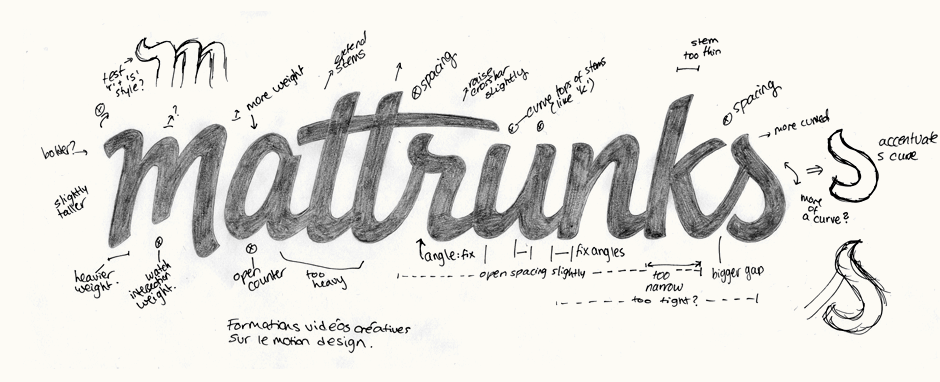 stem
too thin
extend
stems
test
'r + is'
style?
more weight
spacing
raise
crossbar
slightly
curve tops of stems
(like 'k')
spacing
?
more curved
bolder?
accentuate
s curve
mattrunks
slightly
taller
more
of
a curve?
heavier
weight.
watch
intersection
weight.
open
counter
too
heavy
angle: fix
fix angles
open spacing slightly
too
narrow
bigger gap
too tight?
Formations vidéos créatives
sur le motion design.